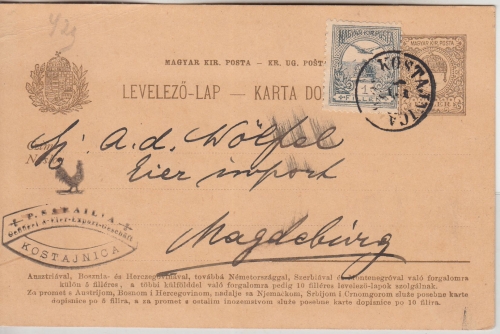 MAGYAR KIR. POSTA — KR. UG. POŠTA
LEVELEZŐ-LAP — KARTA DO
MAGYAR KIR. POSTA
KOSTAJNICA
A. d. Wölfel
Eier import
Magdeburg
KOSTAJNICA
Ausztriával, Bosznia- és Herczegovinával, továbbá Németországgal, Szerbiával és Montenegróval való forgalomra
külön 5 filléres, a többi külfölddel való forgalomra pedig 10 filléres levelező-lapok szolgálnak.
Za promet s Austrijom, Bosnom i Hercegovinom, nadalje sa Njemačkom, Srbijom i Crnomgorom služe posebne karte
dopisnice po 5 filira, a za promet s ostalim inozemstvom služe posebne karte dopisnice po 10 filira.